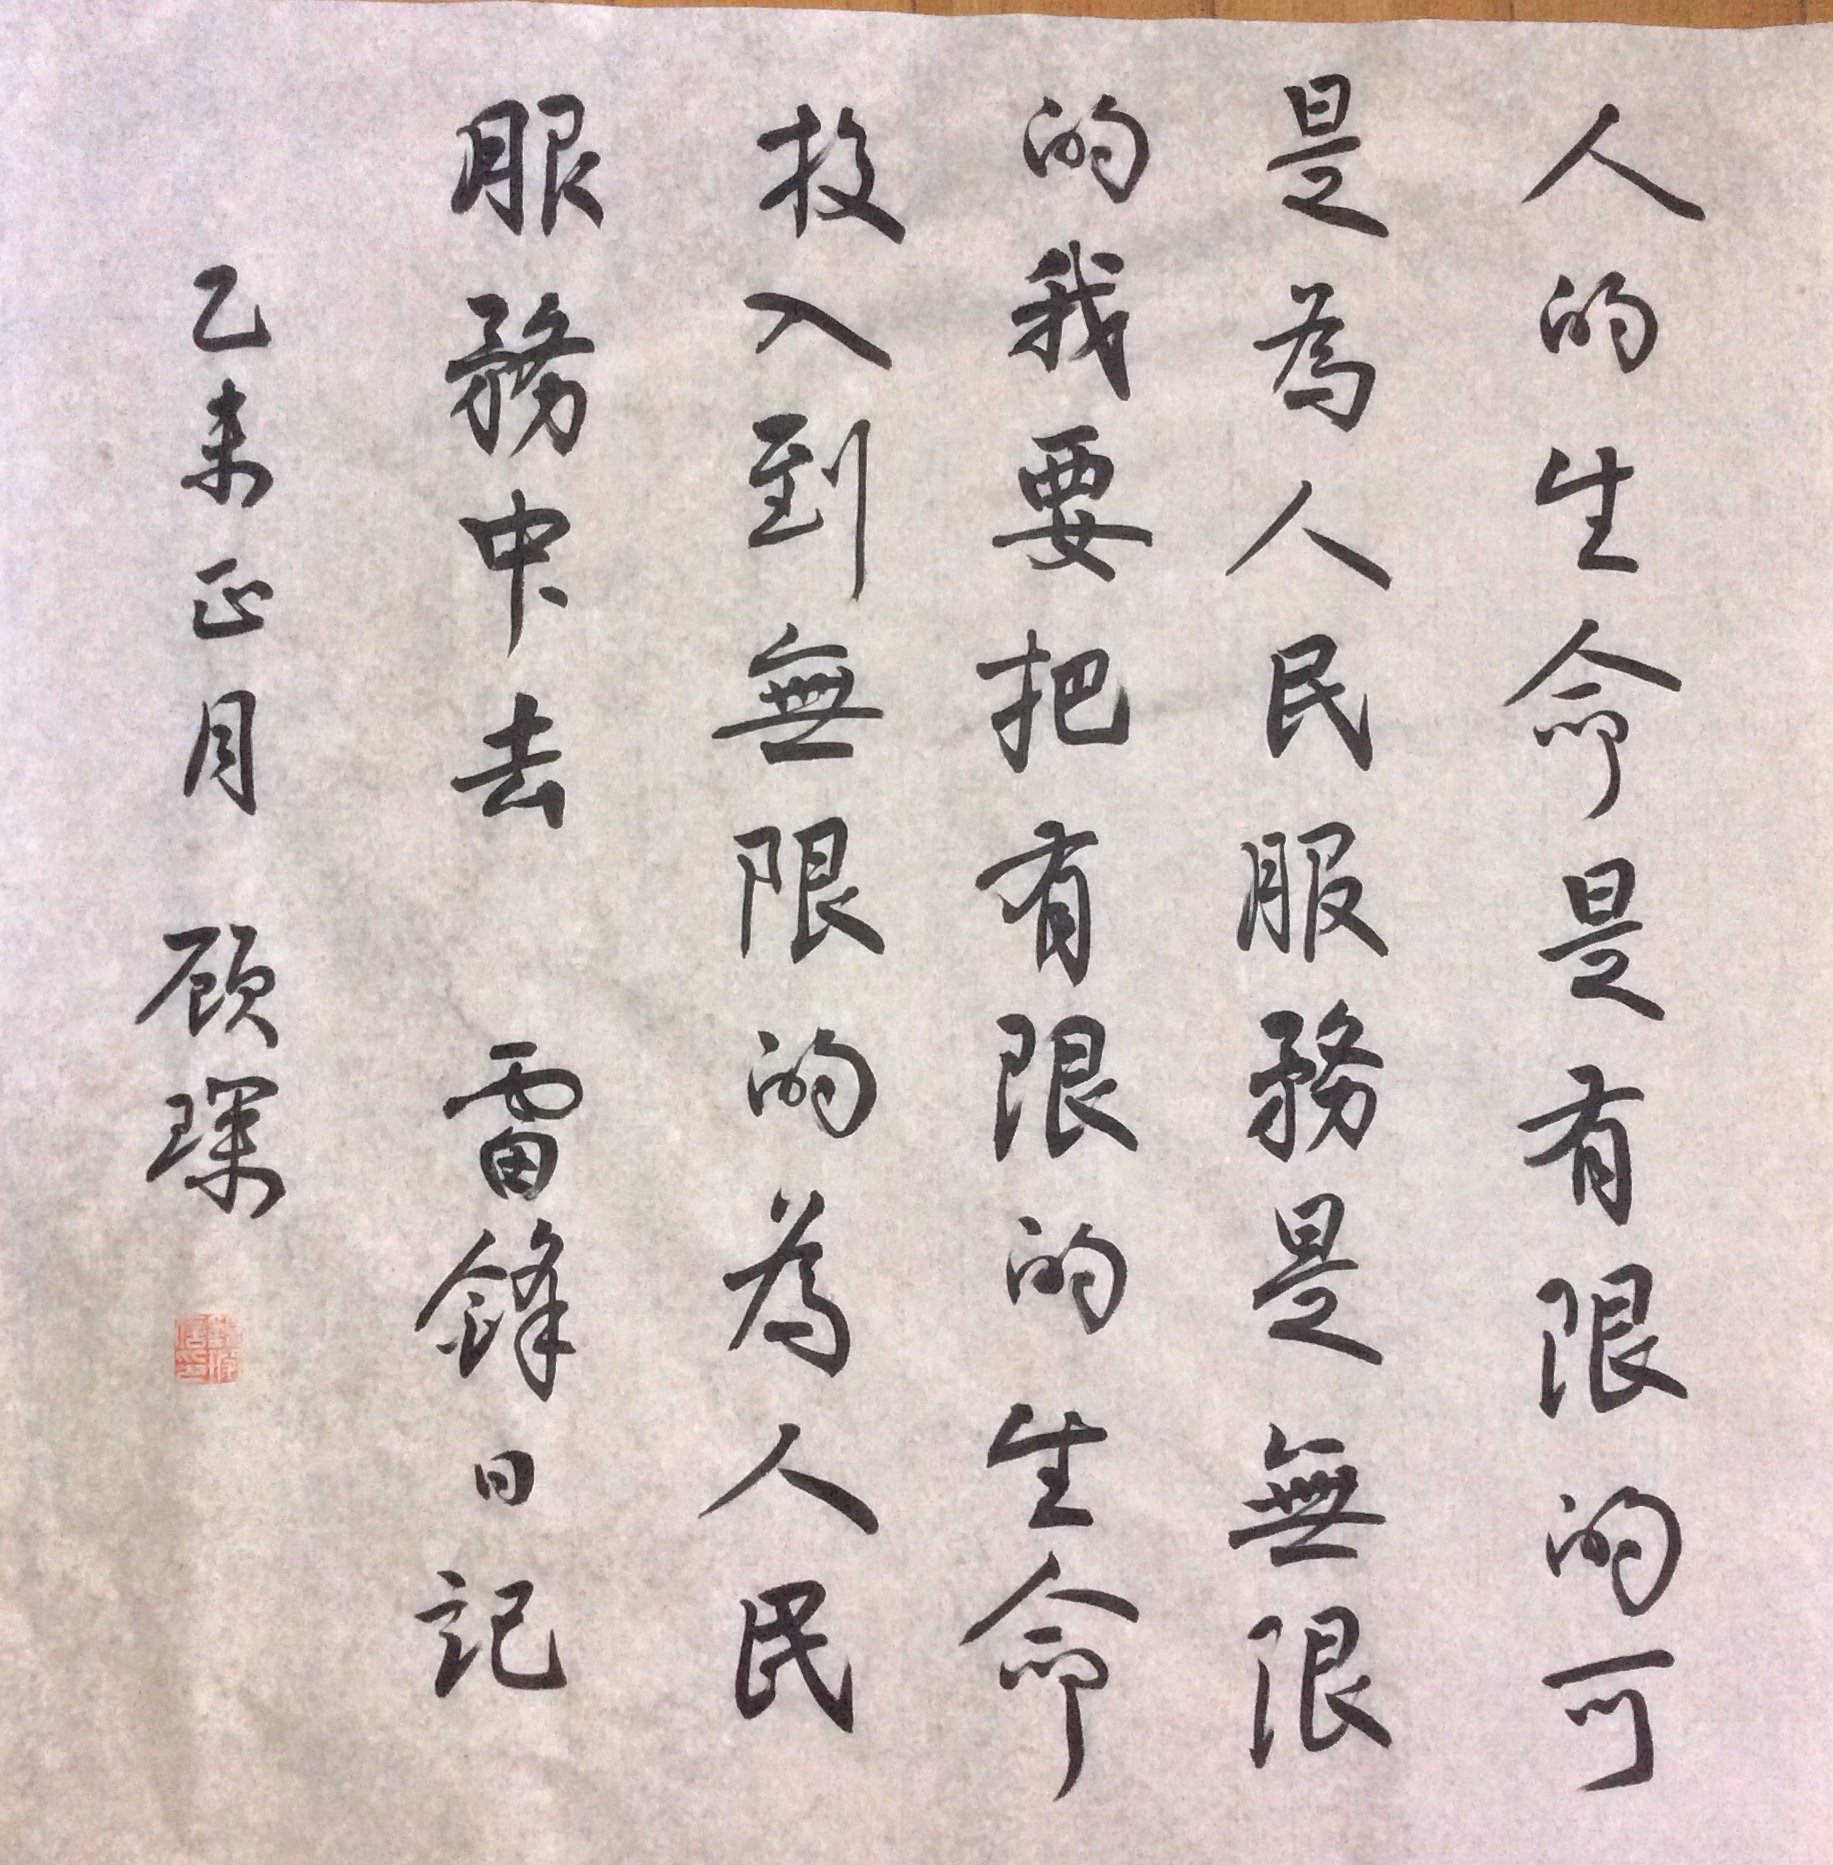 人的生命是有限的可
是為人民服務是無限
的我要把有限的生命
投入到無限的為人民
服務中去 雷鋒日記
乙未正月 顾琛